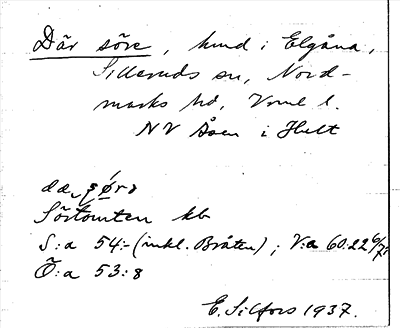 Där söre, hmd i Elgåna,
Silleruds sn, Nord-
marks hd, Vrml l.
NV Åsen i Hult
Sörtomten kb
S:a 54:- (inkl. Bråten); V:a 60:22
Ö:a 53:8
E. Silfors 1937.